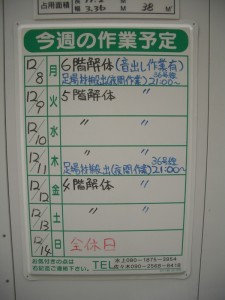 占用面積
3.36 M 38 M
今週の作業予定
12/8 月 6階解体(音出し作業有)
足場材搬出(夜間作業) 21:00〜
12/9 火 5階解体 〃
12/10 水 〃 〃
12/11 木 〃 〃
足場材搬出(夜間作業) 21:00〜
12/12 金 4階解体 〃
12/13 土 〃 〃
12/14 日 全休日
お気付きの点は
右記迄ご連絡下さい。
TEL